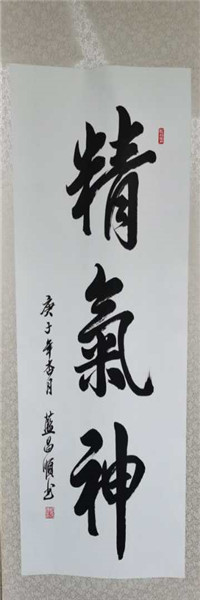 精氣神
庚子年杏月 藍昌順書